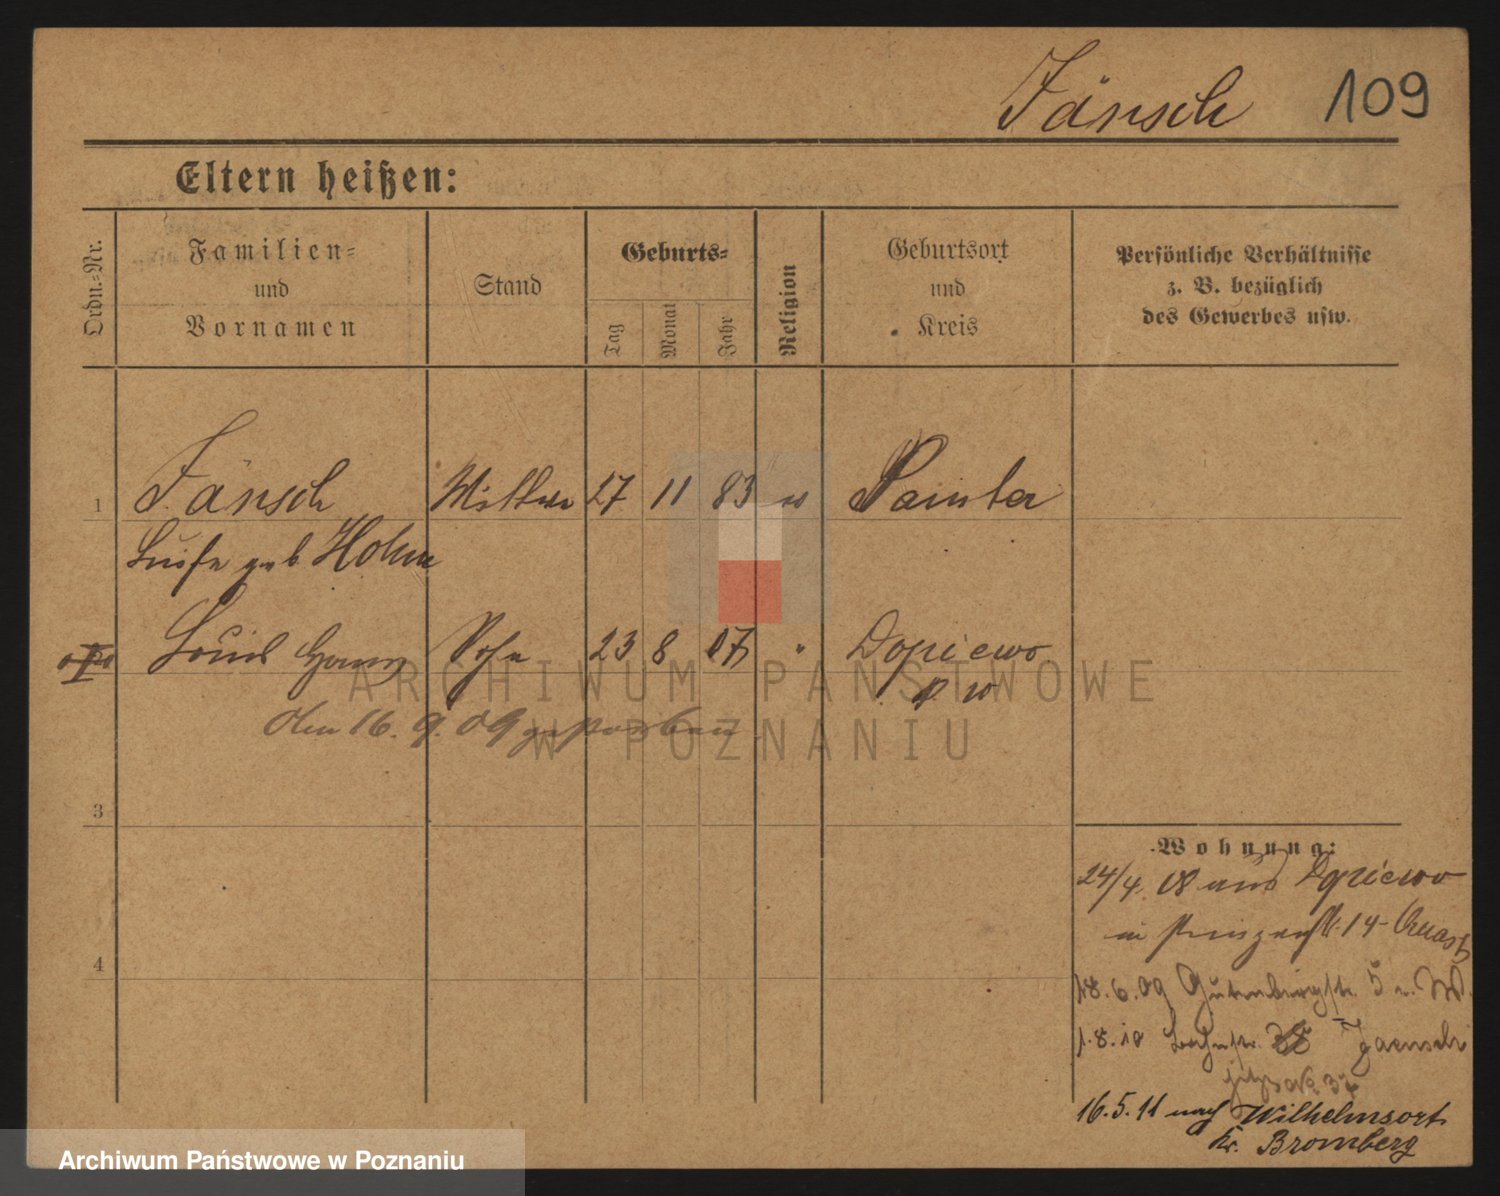 Jänsch 109
Eltern heißen:
Ordn.-Nr.
Familien-
und
Vornamen
Stand
Geburts-
Tag
Monat
Jahr
Religion
Geburtsort
und
Kreis
Persönliche Verhältnisse
z. B. bezüglich
des Gewerbes usw.
1 Jänsch Wittwe 27 11 83 Samter
Luise geb Hohm
Sohn 23 8 07 " Dopiewo
P. W
den 16. 9. 09 gestorben
3
4
Wohnung:
24/4. 08 aus Dopiewo
in 14
18.6.09 Gutenbergstr. 5
1.8.10 Bahnstr. Jaensch
16.5.11 nach Wilhelmsort
Kr. Bromberg
ARCHIWUM PAŃSTWOWE
W POZNANIU
Archiwum Państwowe w Poznaniu